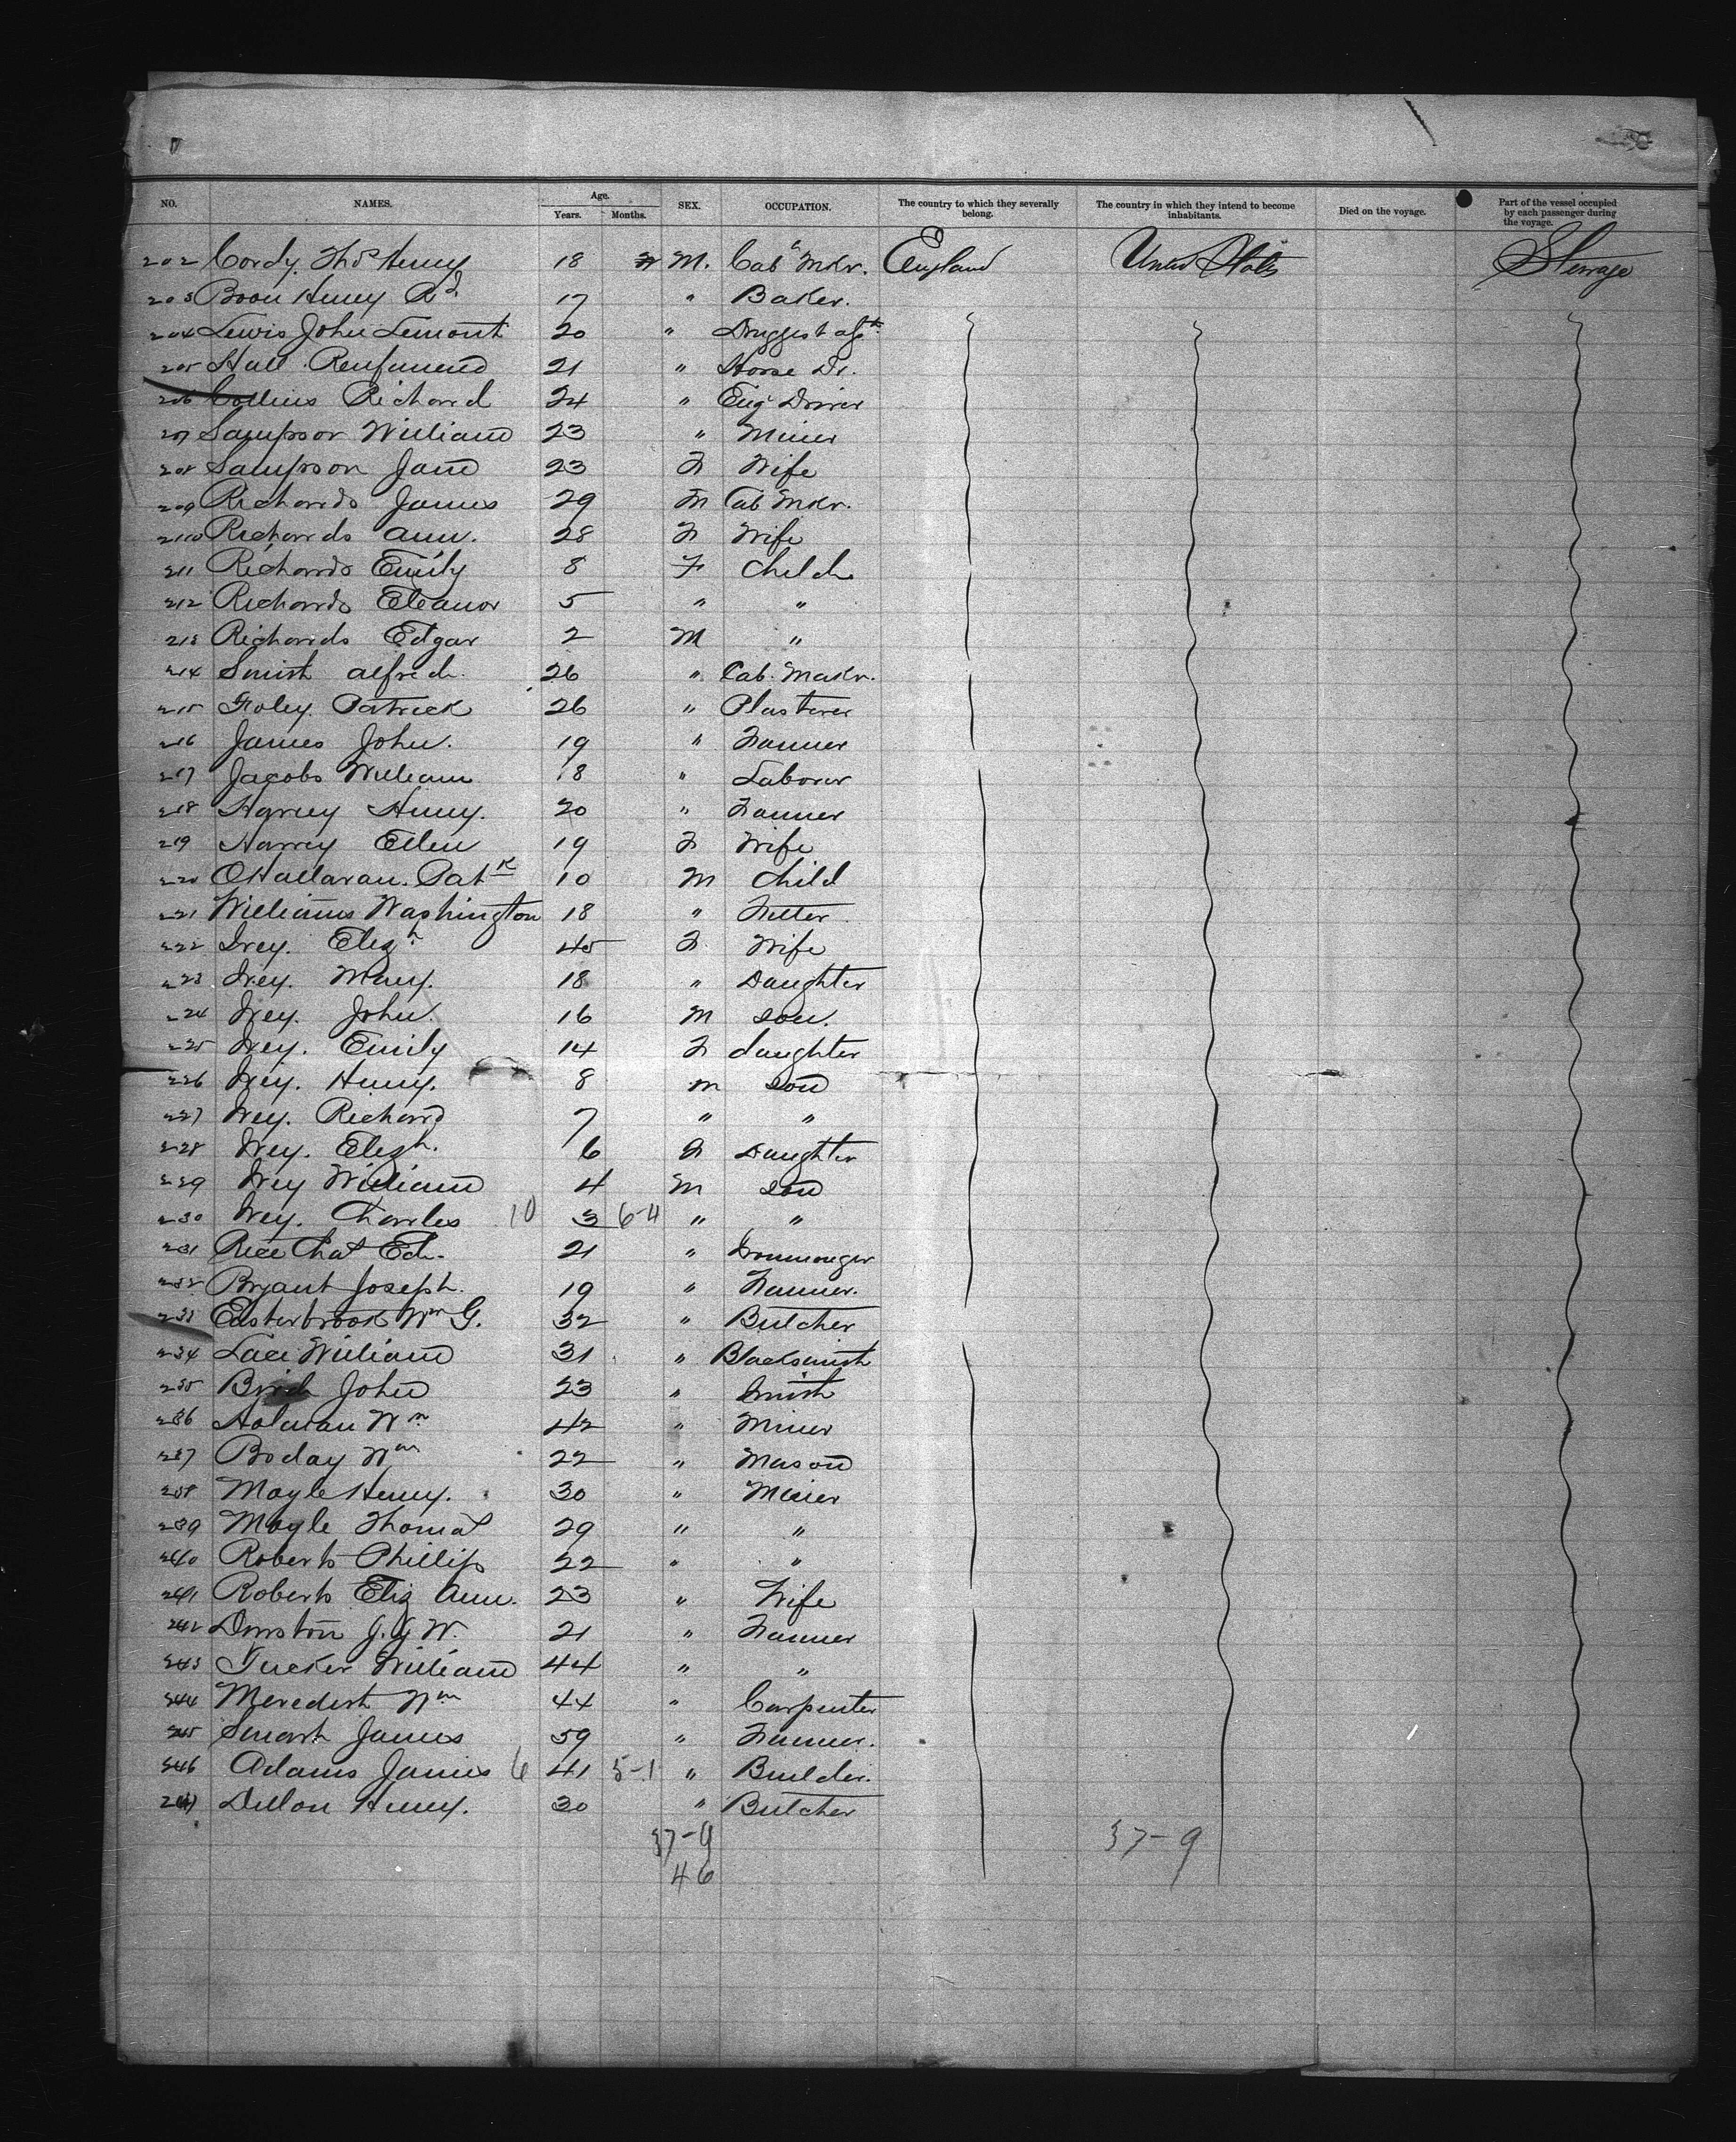 NO. NAMES. Age. Years. Months. SEX. OCCUPATION. The country to which they severally belong. The country in which they intend to become inhabitants. Died on the voyage. Part of the vessel occupied by each passenger during the voyage.
202 Cordy. Thos Henry 18 M. Cabt Mkr. England United States Steerage
203 Henry Rd 17 " Baker.
204 Lewis John Lemont 20 " Druggest asst
205 Hall 21 " Horse Dr.
206 Collins Richard 24 " Eng Driver
207 Sampson William 23 " Miner
208 Sampson Jane 23 F Wife
209 Richards James 29 M Cab Mkr.
210 Richards Ann. 28 F Wife
211 Richards Emily 8 F Child
212 Richards Eleanor 5 " "
213 Richards Edgar 2 M "
214 Smith Alfred. 26 " Cab. Makr.
215 Foley. Patrick 26 " Plasterer
216 James John. 19 " Farmer
217 Jacobs William 18 " Laborer
218 Harvey Henry. 20 " Farmer
219 Harvey Ellen 19 F Wife
220 OHallaran. Patk 10 M Child
221 Williams Washington 18 " Fitter
222 Ivey. Elizh 45 F. Wife
223 Ivey. Mary. 18 " Daughter
224 Ivey. John. 16 M Son.
225 Ivey. Emily 14 F daughter
226 Ivey. Henry. 8 M Son
227 Ivey. Richard 7 " "
228 Ivey. Elizh. 6 F Daughter
229 Ivey William 4 M Son
230 Ivey. Charles 10 3 6-4 " "
231 Rice Chas Ed. 21 " Ironmonger
232 Bryant Joseph. 19 " Farmer.
233 Easterbrook Wm G. 32 " Butcher
234 William 31 " Blacksmith
235 John 23 " Smith
236 Holman Wm 42 " Miner
237 Boday Wm 22 " Mason
238 Moyle Henry. 30 " Miner
239 Moyle Thomas 29 " "
240 Roberts Phillip 22 " "
241 Roberts Eliz Ann. 23 " Wife
242 J. Y W. 21 " Farmer
243 Tucker William 44 " "
244 Meredith Wm 44 " Carpenter
245 Smart James 59 " Farmer.
246 Adams James 6 41 5-1 " Builder.
247 Dillon Henry. 30 " Butcher
37-9 37-9
46